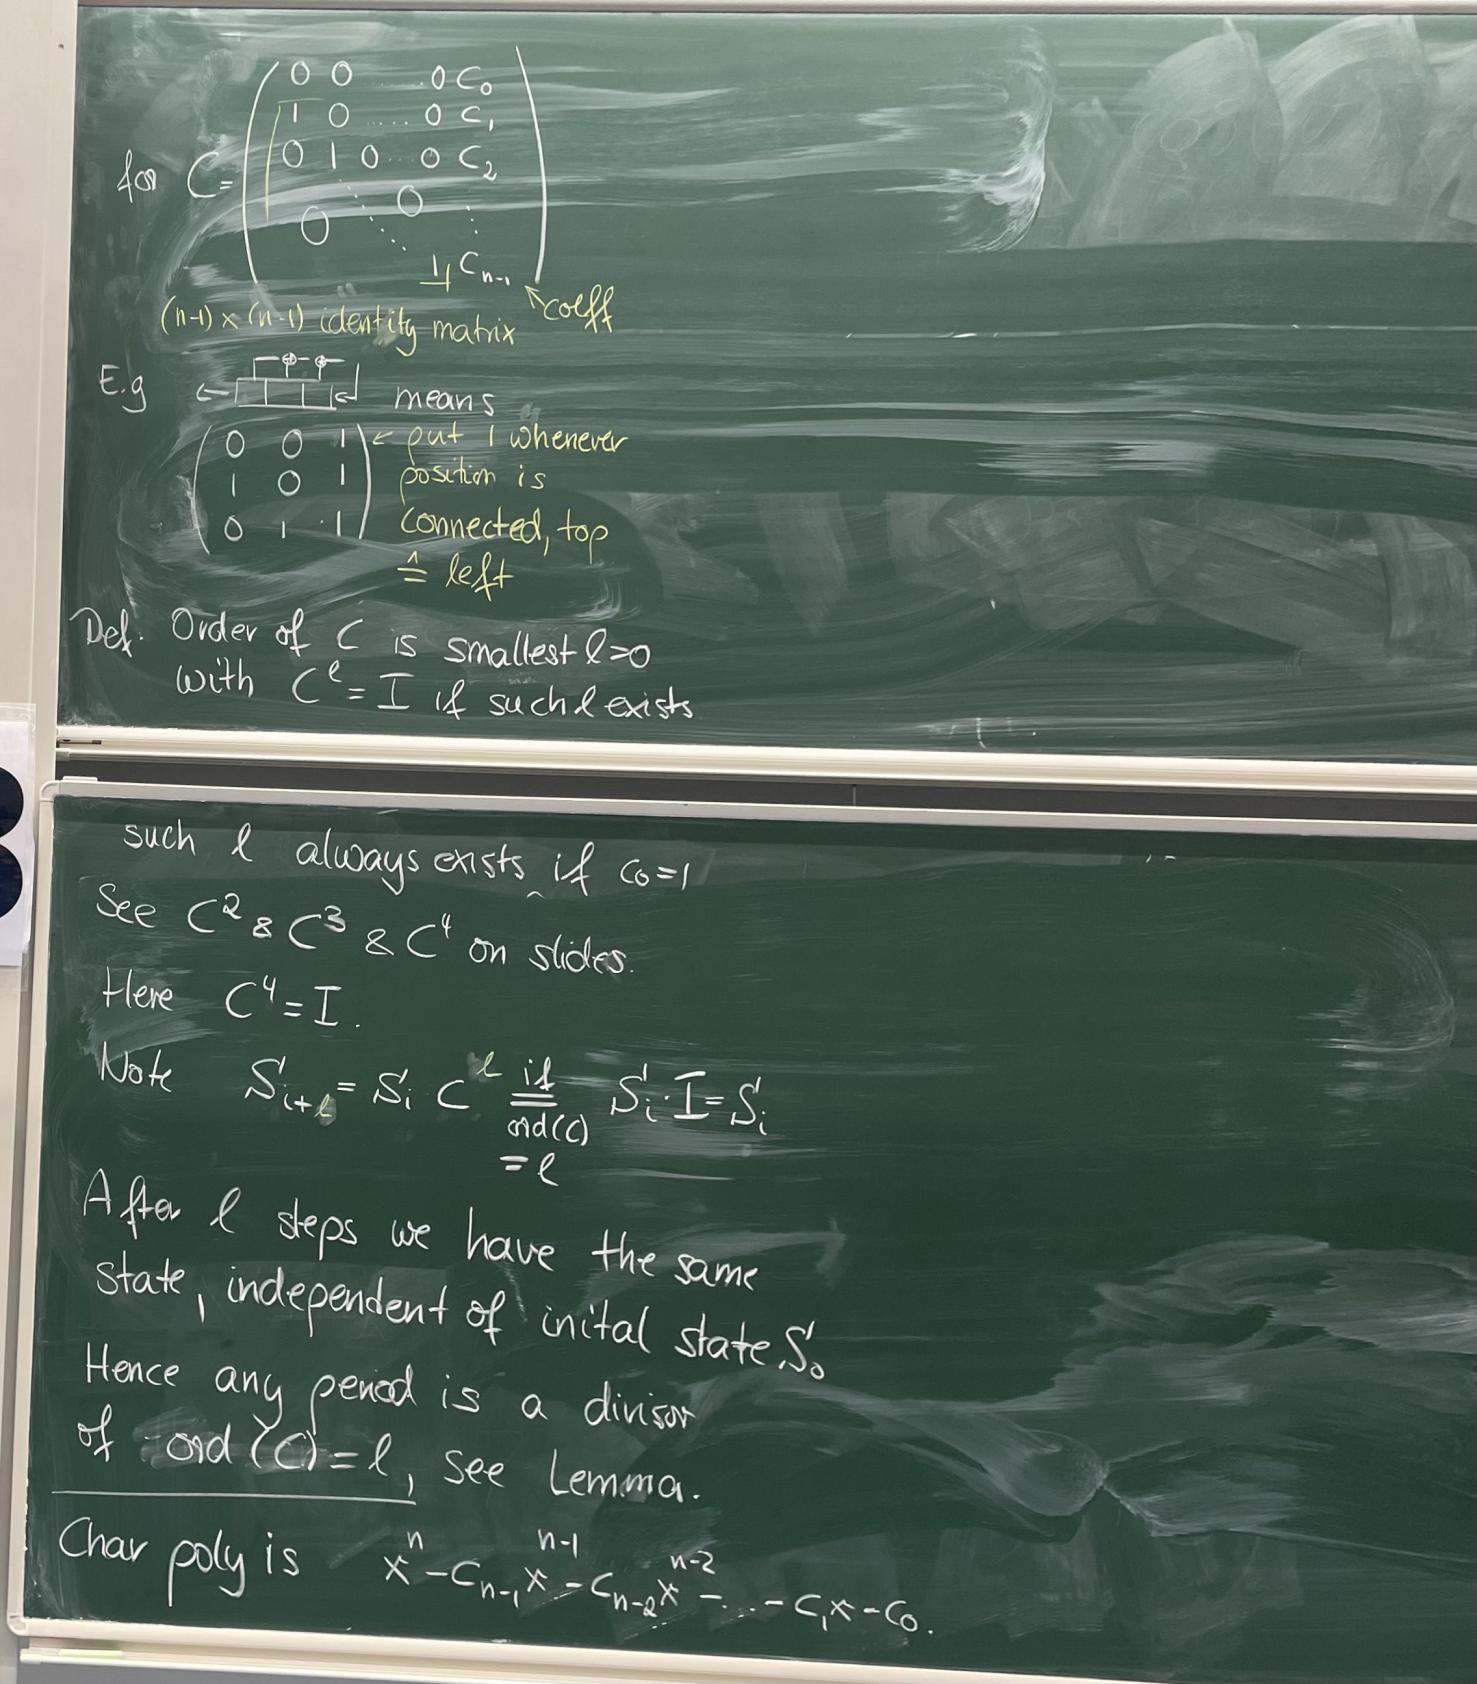 for C = ( 0 0 ..... 0 C₀
1 0 ..... 0 C₁
0 1 0 ... 0 C₂
0 0
1 Cₙ₋₁ )
(n-1) × (n-1) identity matrix ↖ coeff
E.g means
( 0 0 1 ) ← put 1 whenever
1 0 1 position is
0 1 1 connected, top
≙ left
Def. Order of C is smallest l>0
with Cˡ = I if such l exists
such l always exists if c₀=1
See C² & C³ & C⁴ on slides.
Here C⁴ = I.
Note Sᵢ₊ₗ = Sᵢ Cˡ = if ord(C) = l Sᵢ · I = Sᵢ
After l steps we have the same
state, independent of inital state S₀
Hence any period is a divisor
of ord(C) = l, see Lemma.
Char poly is xⁿ - cₙ₋₁xⁿ⁻¹ - cₙ₋₂xⁿ⁻² - ... - c₁x - c₀.